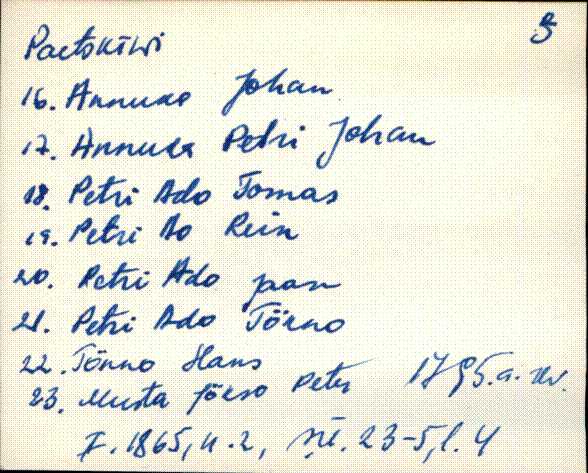 3
Paetskiwi
16. Annuka Johan
17. Annuka Petri Johan
18. Petri Ado Tomas
19. Petri Ao Rein
20. Petri Ado Jaan
21. Petri Ado Tönno
22. Tönno Hans
23. Musta Jörso Peter 1795.a.
F. 1865, n. 2, 23-5, l. 4